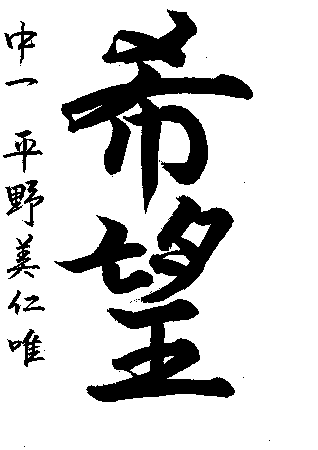 希望
中一 平野美仁唯